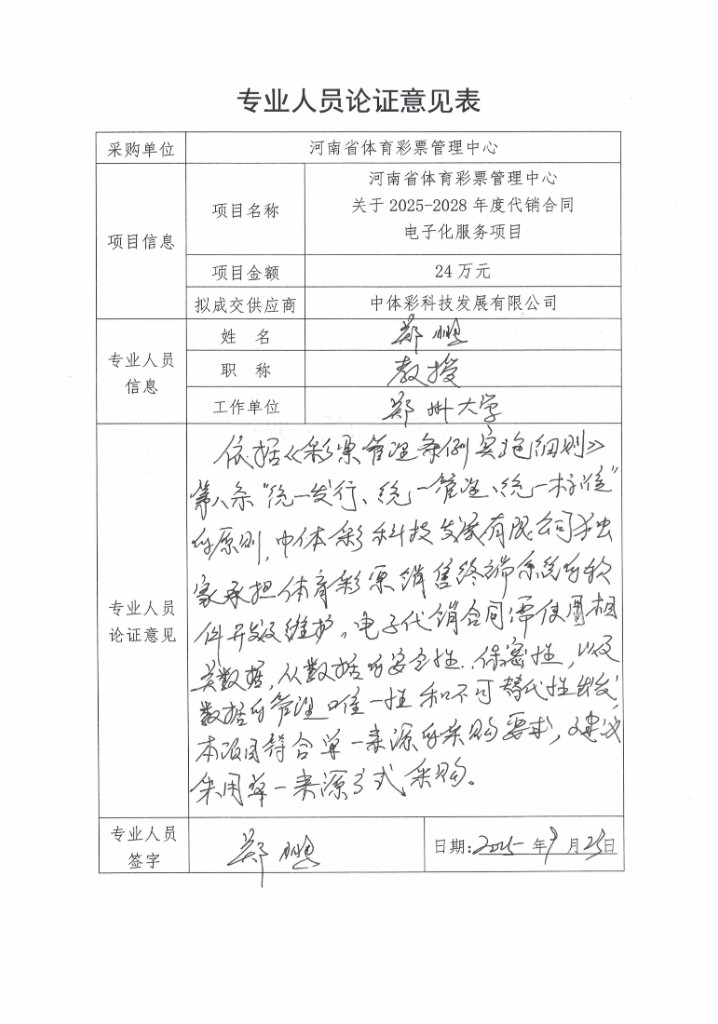 专业人员论证意见表
采购单位
河南省体育彩票管理中心
项目信息
项目名称
河南省体育彩票管理中心
关于 2025-2028 年度代销合同
电子化服务项目
项目金额
24 万元
拟成交供应商
中体彩科技发展有限公司
专业人员
信息
姓 名
郑
职 称
教授
工作单位
郑州大学
专业人员
论证意见
依据《彩票管理条例实施细则》
第八条“统一发行、统一管理、统一标准”
的原则，中体彩科技发展有限公司独
家承担体育彩票销售终端系统的软
件开发及维护。电子代销合同需使用相
关数据，从数据的安全性、保密性，以及
数据的管理唯一性和不可替代性出发，
本项目符合单一来源的采购要求，建议
采用单一来源方式采购。
专业人员
签字
郑
日期: 2025 年 9 月 25 日